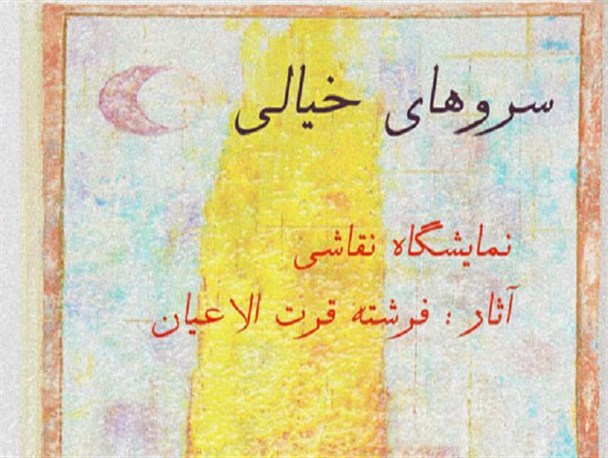 سروهای خیالی
نمایشگاه نقاشی
آثار : فرشته قرت الاعیان